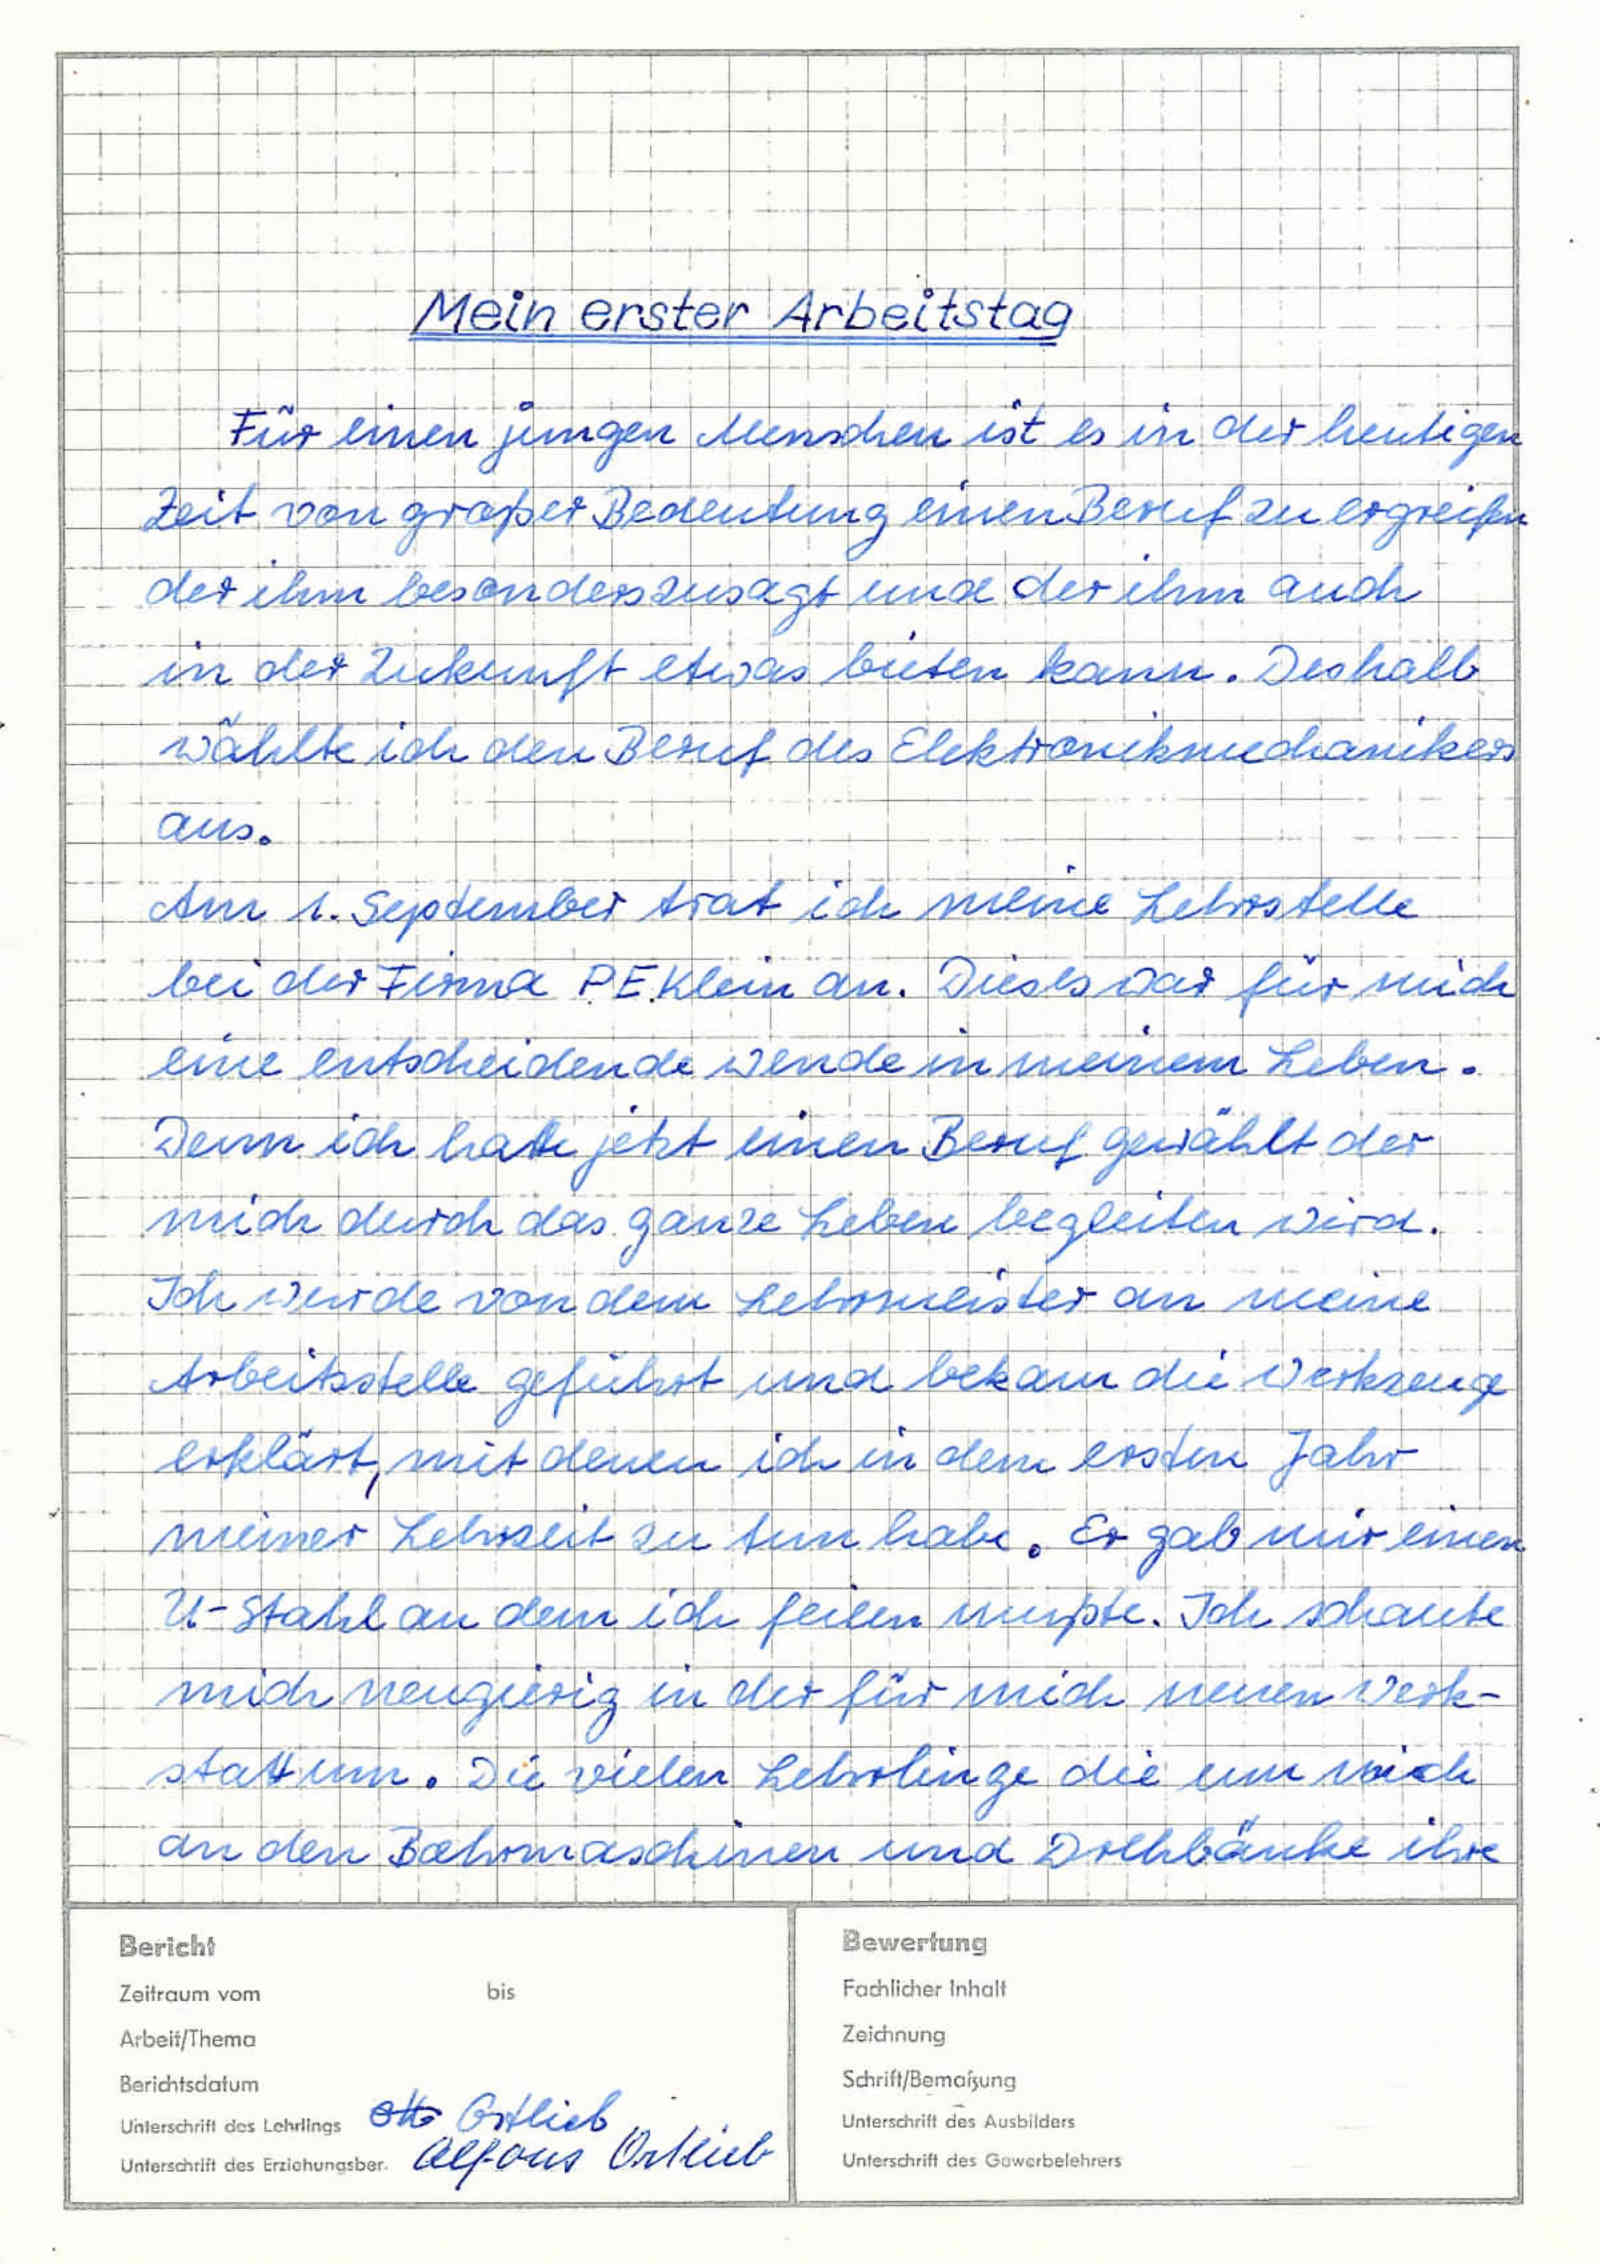 Mein erster Arbeitstag
Für einen jungen Menschen ist es in der heutigen
Zeit von großer Bedeutung einen Beruf zu ergreifen
der ihm besonders zusagt und der ihm auch
in der Zukunft etwas bieten kann. Deshalb
wählte ich den Beruf des Elektronikmechanikers
aus.
Am 1. September trat ich meine Lehrstelle
bei der Firma P.E. Klein an. Dieses war für mich
eine entscheidende Wende in meinem Leben.
Denn ich hatte jetzt einen Beruf gewählt der
mich durch das ganze Leben begleiten wird.
Ich wurde von dem Lehrmeister an meine
Arbeitsstelle geführt und bekam die Werkzeuge
erklärt, mit denen ich in dem ersten Jahr
meiner Lehrzeit zu tun habe. Er gab mir einen
U-Stahl an dem ich feilen mußte. Ich schaute
mich neugierig in der für mich neuen Werk-
statt um. Die vielen Lehrlinge die um mich
an den Bohrmaschinen und Drehbänke ihre
Bericht
Zeitraum vom bis
Arbeit/Thema
Berichtsdatum
Unterschrift des Lehrlings Otto Ortlieb
Unterschrift des Erziehungsber. Alfons Ortlieb
Bewertung
Fachlicher Inhalt
Zeichnung
Schrift/Bemaßung
Unterschrift des Ausbilders
Unterschrift des Gewerbelehrers